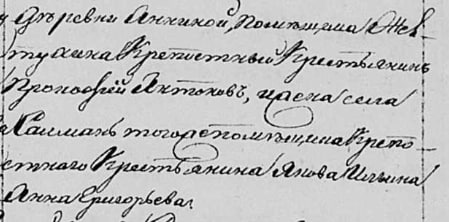 деревни Анниной, помѣщика Жев
тухина Крепостный Крестьянинъ
Прокофей Антоновъ, жена села
Калманъ тогожъ помѣщика Крепо-
стнаго Крестьянина Якова Ильина
Анна Григорьева